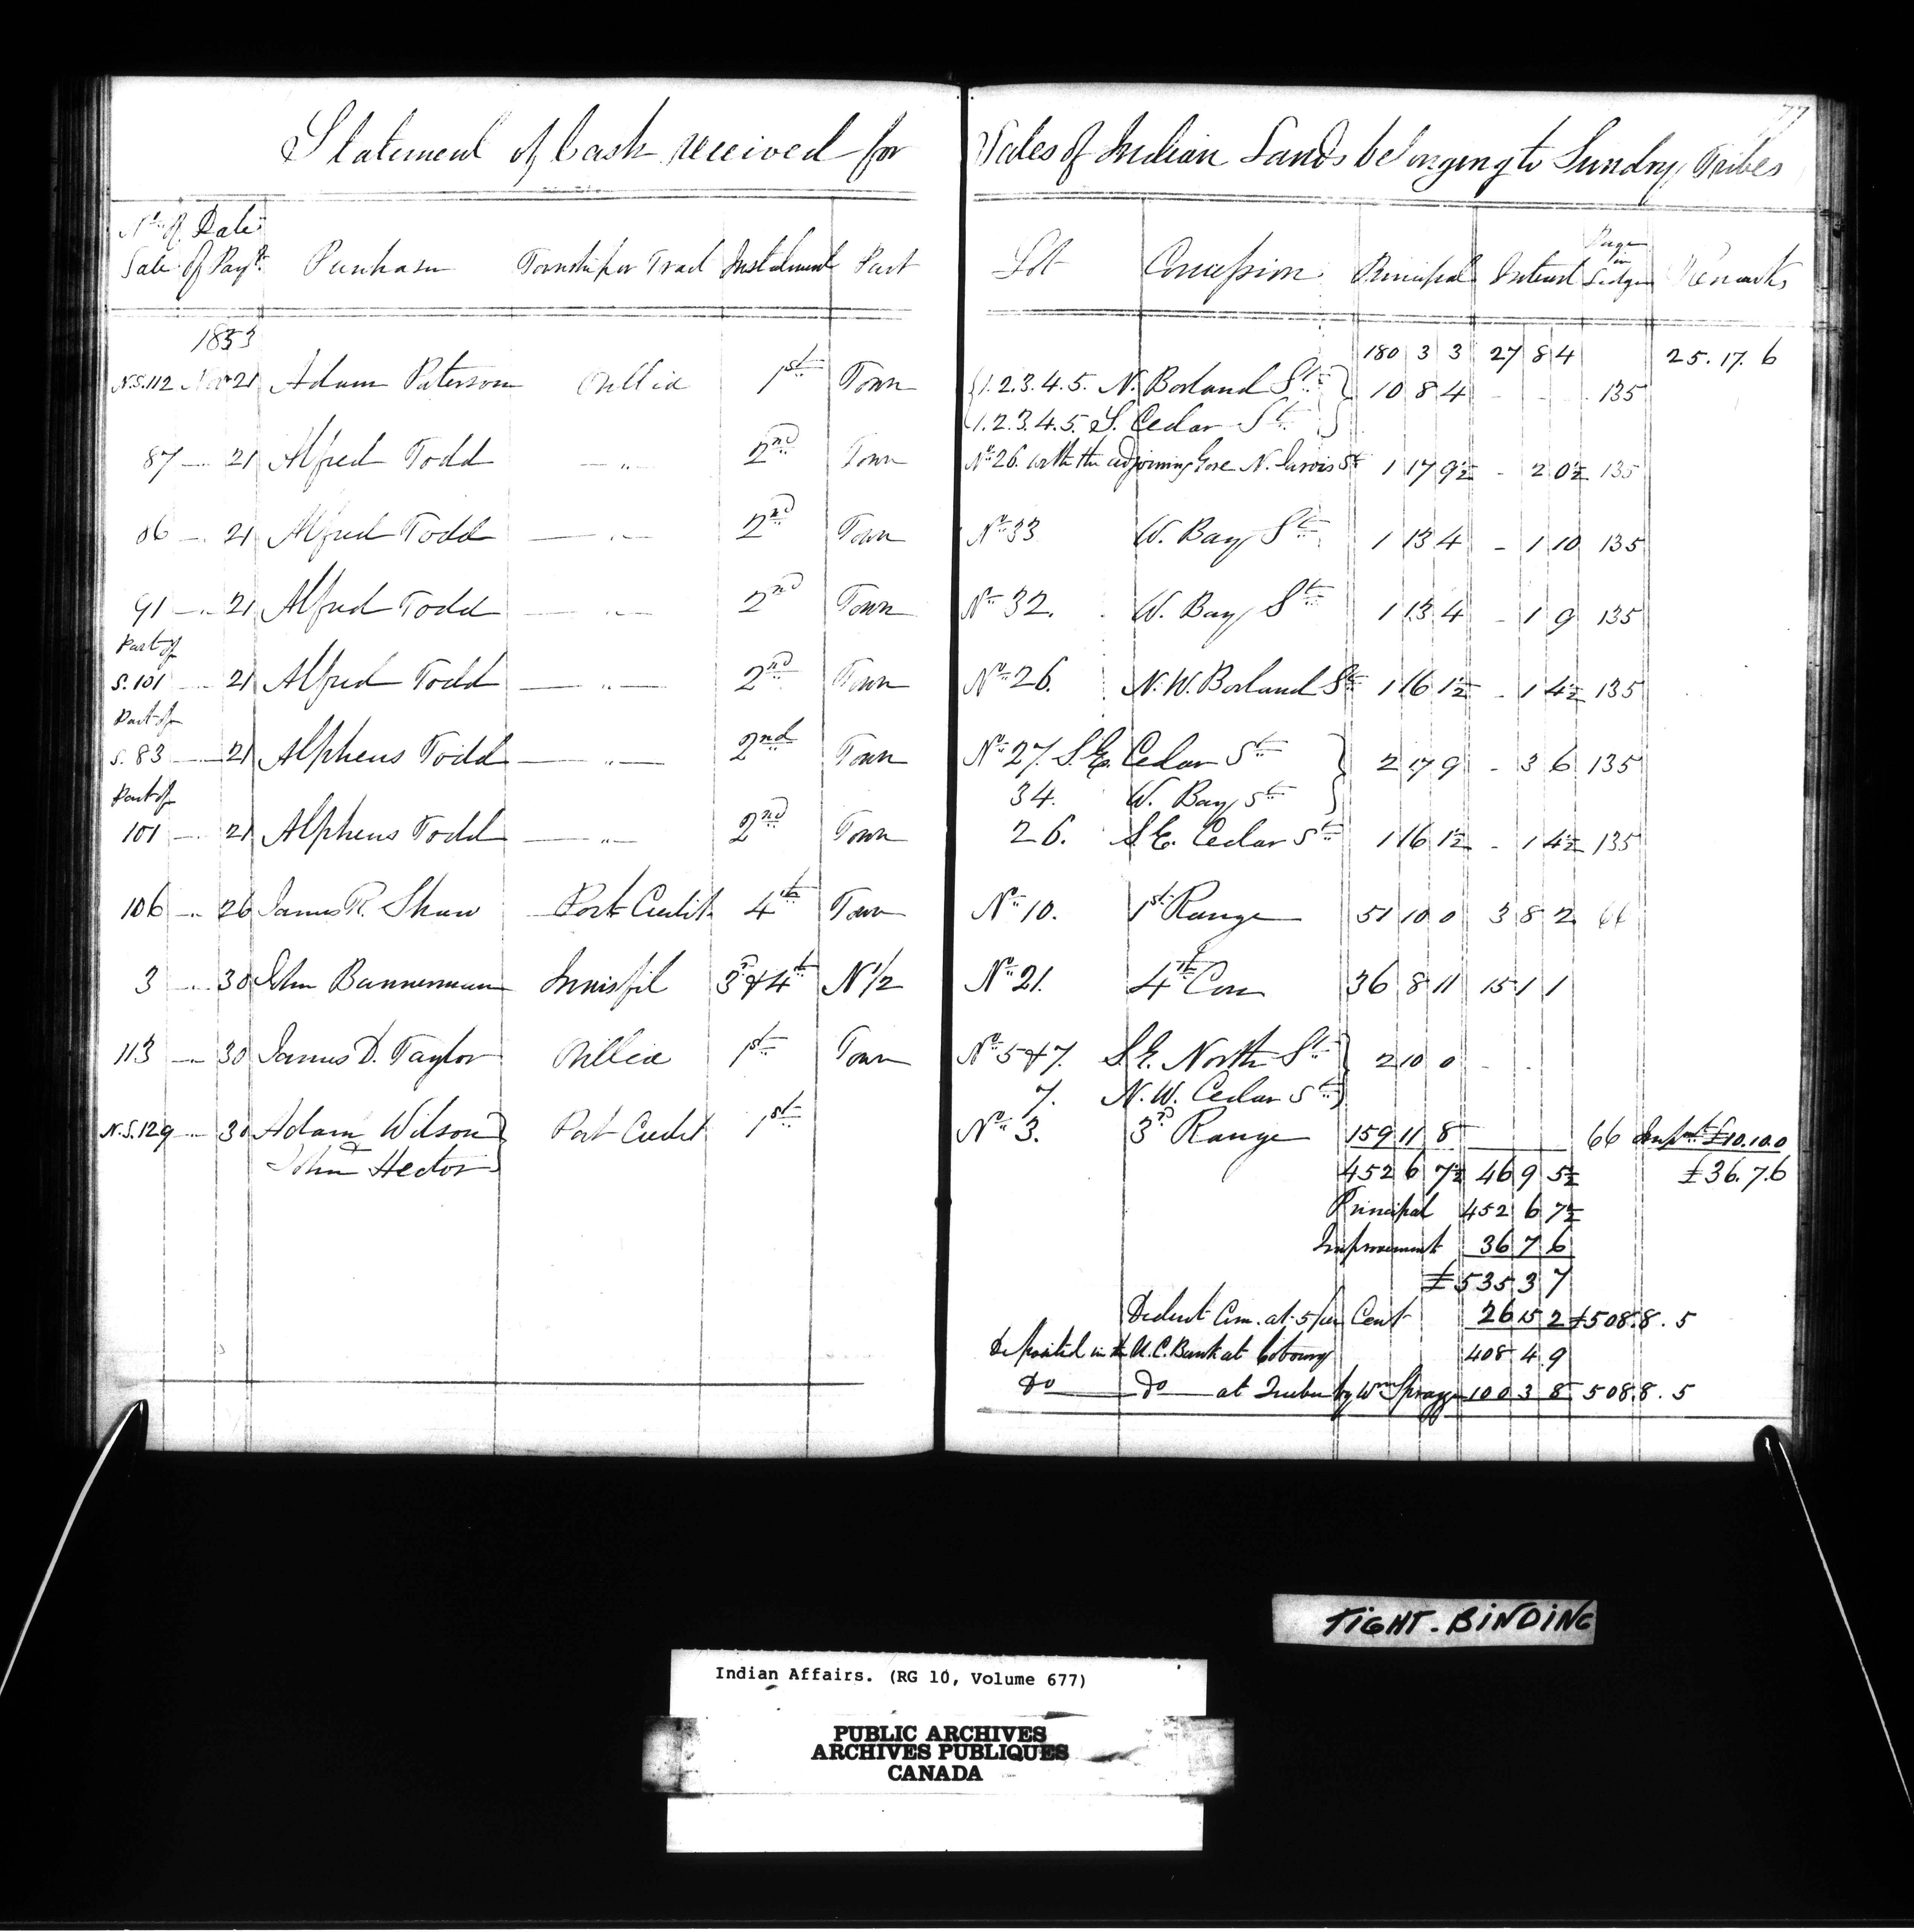 77
Statement of Cash received for Sales of Indian Lands belonging to Sundry Tribes
No. of Sale Date of Paymt. Purchaser Township or Tract Instalment Part Lot Concession Principal Interest Page in Ledger Remarks
1853
180 3 3 27 8 4 25.17.6
N.S.112 Novr 21 Adam Paterson Orillia 1st Town {1.2.3.4.5. N. Borland St.} 10 8 4 - - - 135
{1.2.3.4.5. S. Cedar St.}
87 -"- 21 Alfred Todd -"- 2nd Town No. 26 with the adjoining Gore N. Jarvis St 1 17 9½ - 2 0½ 135
86 -"- 21 Alfred Todd -"- 2nd Town No. 33 W. Bay St. 1 13 4 - 1 10 135
91 -"- 21 Alfred Todd -"- 2nd Town No. 32. W. Bay St. 1 13 4 - 1 9 135
Part of
S. 101 -"- 21 Alfred Todd -"- 2nd Town No. 26. N.W. Borland St. 1 16 1½ - 1 4½ 135
Part of
S. 83 -"- 21 Alpheus Todd -"- 2nd Town No. 27. S.E. Cedar St. } 2 17 9 - 3 6 135
34. W. Bay St. }
Part of
101 -"- 21 Alpheus Todd -"- 2nd Town 26. S.E. Cedar St. 1 16 1½ - 1 4½ 135
106 -"- 26 James R. Shaw Port Credit 4th Town No. 10. 1st Range 51 10 0 3 8 2 66
3 -"- 30 John Bannerman Innisfil 3d & 4th N 1/2 No. 21. 4th Con 36 8 11 15 1 1
113 -"- 30 James D. Taylor Orillia 1st Town No. 5 & 7. S.E. North St. } 2 10 0 - -
7. N.W. Cedar St. }
N.S.129 -"- 30 Adam Wilson } Port Credit 1st No. 3. 3d Range 159 11 8 66 Impmt £10.10.0
& John Hector } 452 6 7½ 46 9 5½ £36.7.6
Principal 452 6 7½
Improvement 36 7 6
£535 3 7
Deduct Com. at 5 per Cent 26 15 2 £508.8.5
Deposited in the U.C. Bank at Cobourg 408 4 9
Do Do at Quebec by Wm Spragge 100 3 8 508.8.5
TIGHT. BINDING
Indian Affairs. (RG 10, Volume 677)
PUBLIC ARCHIVES
ARCHIVES PUBLIQUES
CANADA